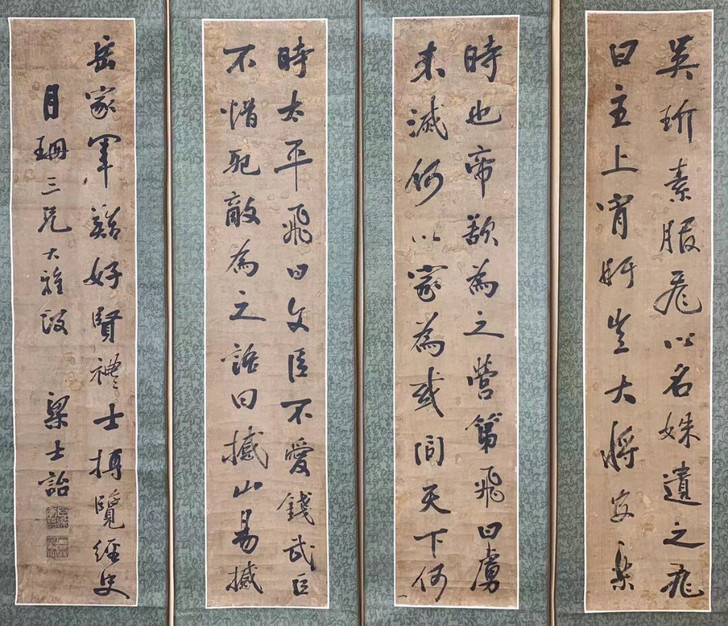 吳玠素服飛以名姝遺之飛
曰主上宵旰豈大將安樂
時也帝欲為之營第飛曰虜
未滅何以家為或問天下何
時太平飛曰文臣不愛錢武臣
不惜死敵為之語曰撼山易撼
岳家軍難好賢禮士博覽經史
月珊三兄大雅政 梁士詒